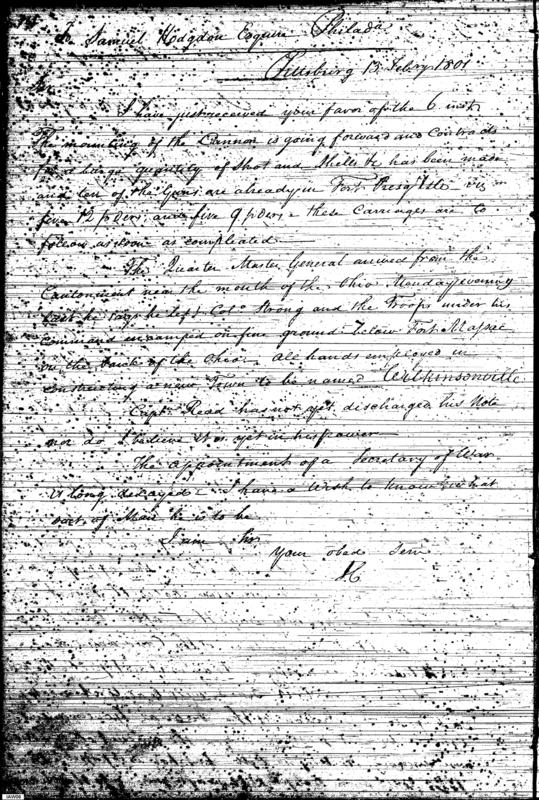 To Samuel Hodgdon Esquire Philada
Pittsburg 13 Febry 1801
Sir
I have just received your favor of the 6 inst
The mounting of the Cannon is going forward and Contracts
for a large quantity of Shot and Shells &c has been made
and ten of the Guns are already in Fort Presqu Isle Viz
five 12 pders; and five 9 pders - these Carriages are to
follow as soon as compleated
The Quarter Master General arrived from the
Cantonment near the mouth of the Ohio Monday evening
last he says he left Colo Strong and the Troops under his
command encamped on fine ground below Fort Massac
on the bank of the Ohio. all hands employed in
constructing a new Town to be named Wilkinsonville
Capt. Read has not yet discharged his Note
nor do I believe it is yet in his power
The appointment of a Secretary of War
is long delayed - I have a wish to know what
sort of Man he is to be
I am Sir
Your obed Serv